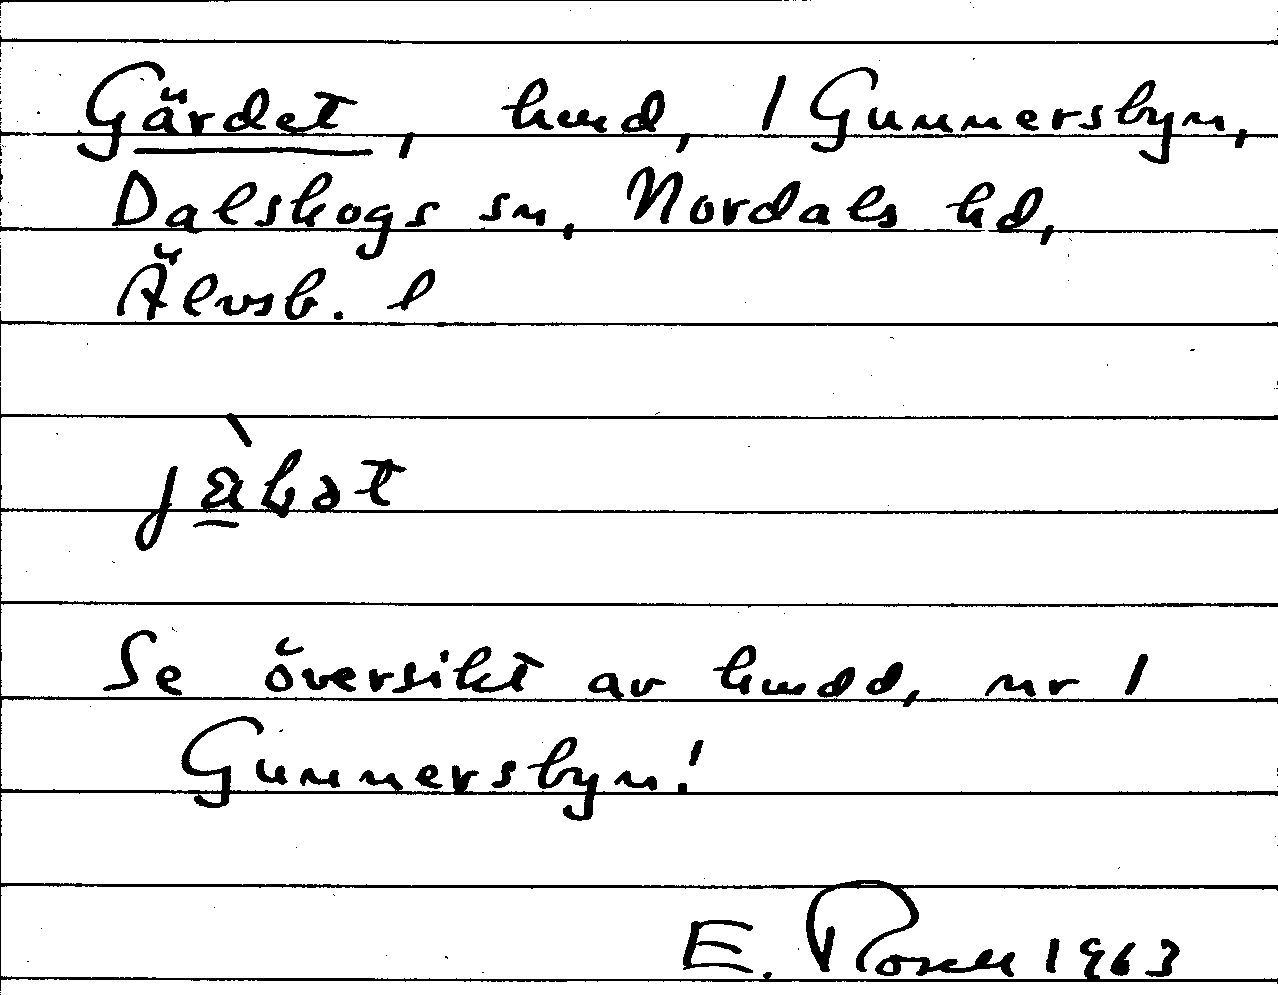 Gärdet, hmd, 1 Gunnersbyn,
Dalskogs sn, Nordals hd,
Älvsb. l
Se översikt av hmdd, nr 1
Gunnersbyn!
E. Rosell 1963